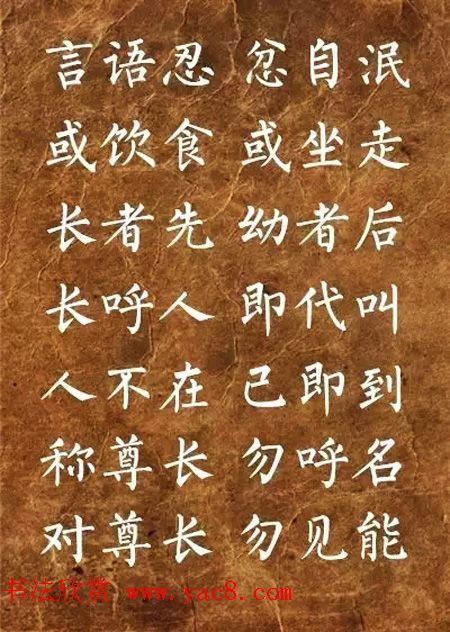 言语忍 忿自泯
或饮食 或坐走
长者先 幼者后
长呼人 即代叫
人不在 己即到
称尊长 勿呼名
对尊长 勿见能
书法欣赏 www.yac8.com